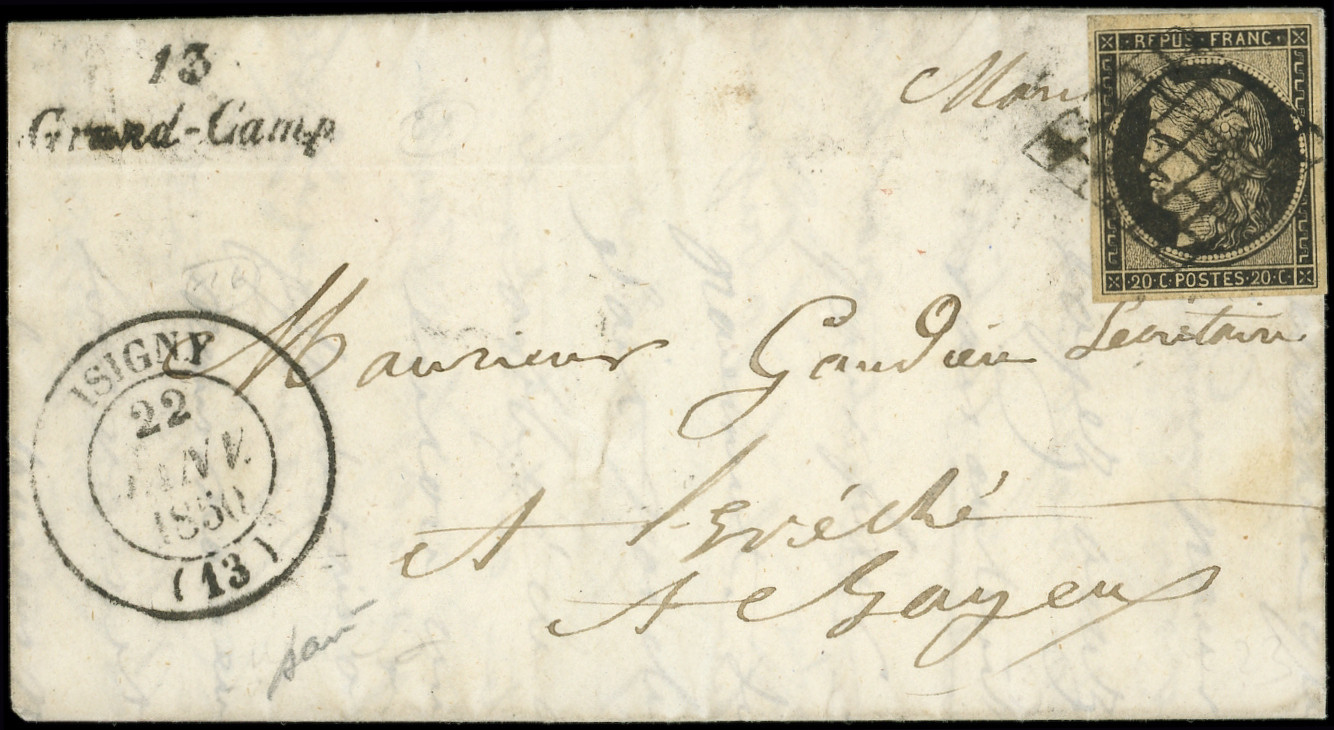 13
Grand-Camp
REPUB·FRANC
20·C·POSTES·20·C
ISIGNY
22
JANV.
1850
(13)
Monsieur Gaudieu Secretaire
A l'evêché
A Bayeux